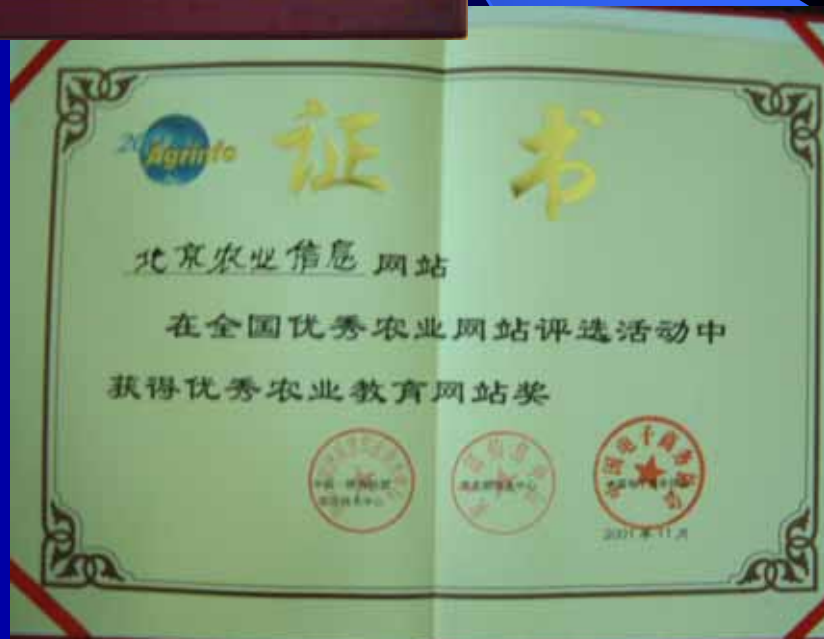 Agrinfo
证书
北京农业信息 网站
在全国优秀农业网站评选活动中
获得优秀农业教育网站奖
2001年11月